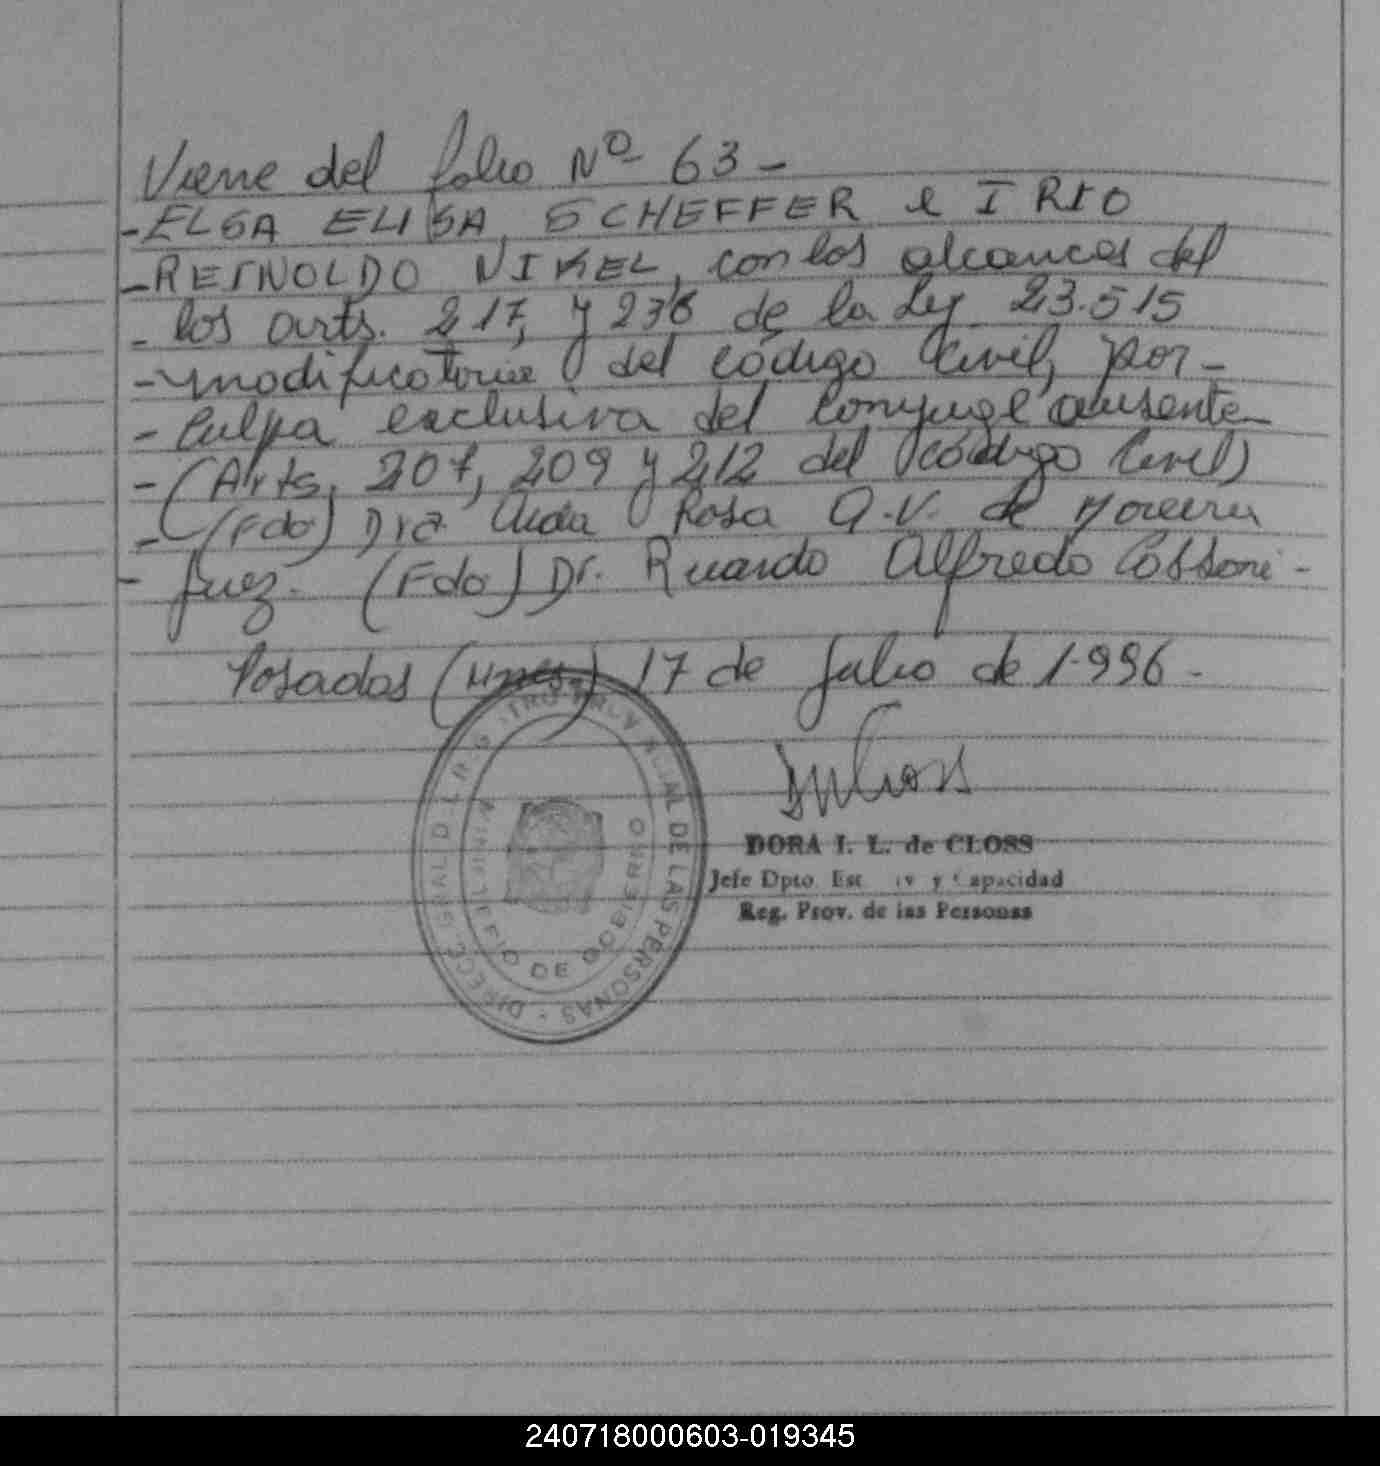 Viene del folio Nº 63 -
- ELSA ELISA SCHEFFER e IRIO
- REINOLDO NIKEL, con los alcances del
- los arts. 217, y 236 de la Ley 23.515
- modificatoria del código Civil, por -
- Culpa exclusiva del Conyuge ausente -
- (Arts. 207, 209 y 212 del código Civil)
- (Fdo) Dra Aida Rosa A.V. de Moreira
- Juez. (Fdo) Dr. Ricardo Alfredo Cassoni -
Posadas (Mnes) 17 de Julio de 1.996 -
DORA I. L. de CLOSS
Jefe Dpto. Est. y Capacidad
Reg. Prov. de las Personas
DE LAS PERSONAS
DE GOBIERNO
240718000603-019345